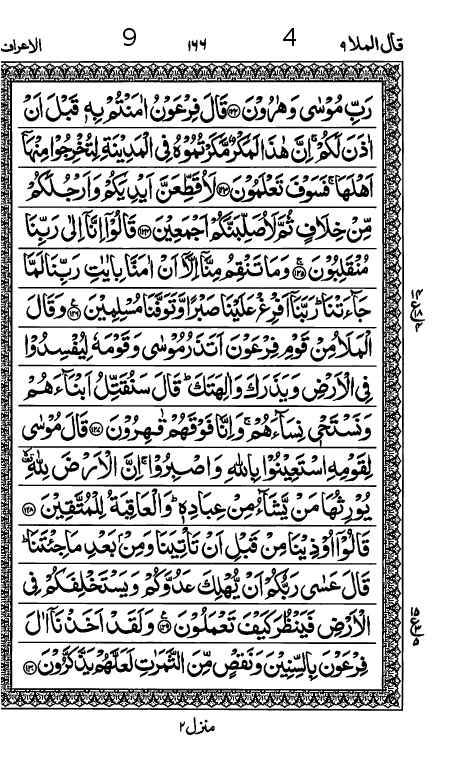 قال الملا ٩ 4 ١٦٦ 9 الاعراف
رَبِّ مُوْسٰى وَهٰرُوْنَ ﴿١٢٢﴾ قَالَ فِرْعَوْنُ اٰمَنْتُمْ بِهٖ قَبْلَ اَنْ
اٰذَنَ لَكُمْ ۚ اِنَّ هٰذَا لَمَكْرٌ مَّكَرْتُمُوْهُ فِى الْمَدِيْنَةِ لِتُخْرِجُوْا مِنْهَاۤ
اَهْلَهَا ۚ فَسَوْفَ تَعْلَمُوْنَ ﴿١٢٣﴾ لَاُقَطِّعَنَّ اَيْدِيَكُمْ وَاَرْجُلَكُمْ
مِّنْ خِلَافٍ ثُمَّ لَاُصَلِّبَنَّكُمْ اَجْمَعِيْنَ ﴿١٢٤﴾ قَالُوْۤا اِنَّاۤ اِلٰى رَبِّنَا
مُنْقَلِبُوْنَ ﴿١٢٥﴾ وَمَا تَنْقِمُ مِنَّاۤ اِلَّاۤ اَنْ اٰمَنَّا بِاٰيٰتِ رَبِّنَا لَمَّا
جَآءَتْنَا ؕ رَبَّنَاۤ اَفْرِغْ عَلَيْنَا صَبْرًا وَّتَوَفَّنَا مُسْلِمِيْنَ ﴿١٢٦﴾ وَقَالَ
الْمَلَاُ مِنْ قَوْمِ فِرْعَوْنَ اَتَذَرُ مُوْسٰى وَقَوْمَهٗ لِيُفْسِدُوْا
فِى الْاَرْضِ وَيَذَرَكَ وَاٰلِهَتَكَ ؕ قَالَ سَنُقَتِّلُ اَبْنَآءَهُمْ
وَنَسْتَحْىٖ نِسَآءَهُمْ ۚ وَاِنَّا فَوْقَهُمْ قٰهِرُوْنَ ﴿١٢٧﴾ قَالَ مُوْسٰى
لِقَوْمِهِ اسْتَعِيْنُوْا بِاللّٰهِ وَاصْبِرُوْا ۚ اِنَّ الْاَرْضَ لِلّٰهِ
يُوْرِثُهَا مَنْ يَّشَآءُ مِنْ عِبَادِهٖ ؕ وَالْعَاقِبَةُ لِلْمُتَّقِيْنَ ﴿١٢٨﴾
قَالُوْۤا اُوْذِيْنَا مِنْ قَبْلِ اَنْ تَاْتِيَنَا وَمِنْۢ بَعْدِ مَا جِئْتَنَا ؕ
قَالَ عَسٰى رَبُّكُمْ اَنْ يُّهْلِكَ عَدُوَّكُمْ وَيَسْتَخْلِفَكُمْ فِى
الْاَرْضِ فَيَنْظُرَ كَيْفَ تَعْمَلُوْنَ ﴿١٢٩﴾ وَلَقَدْ اَخَذْنَاۤ اٰلَ
فِرْعَوْنَ بِالسِّنِيْنَ وَنَقْصٍ مِّنَ الثَّمَرٰتِ لَعَلَّهُمْ يَذَّكَّرُوْنَ ﴿١٣٠﴾
منزل ٢